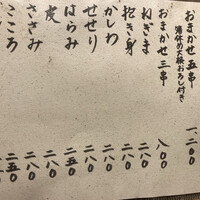 おまかせ五串 一、二〇〇
箸休め大根おろし付き
おまかせ三串 八〇〇
ねぎま 二八〇
抱き身 二八〇
かしわ 二八〇
せせり 二八〇
はらみ 二五〇
皮 二八〇
ささみ 二八〇
こころ 二五〇